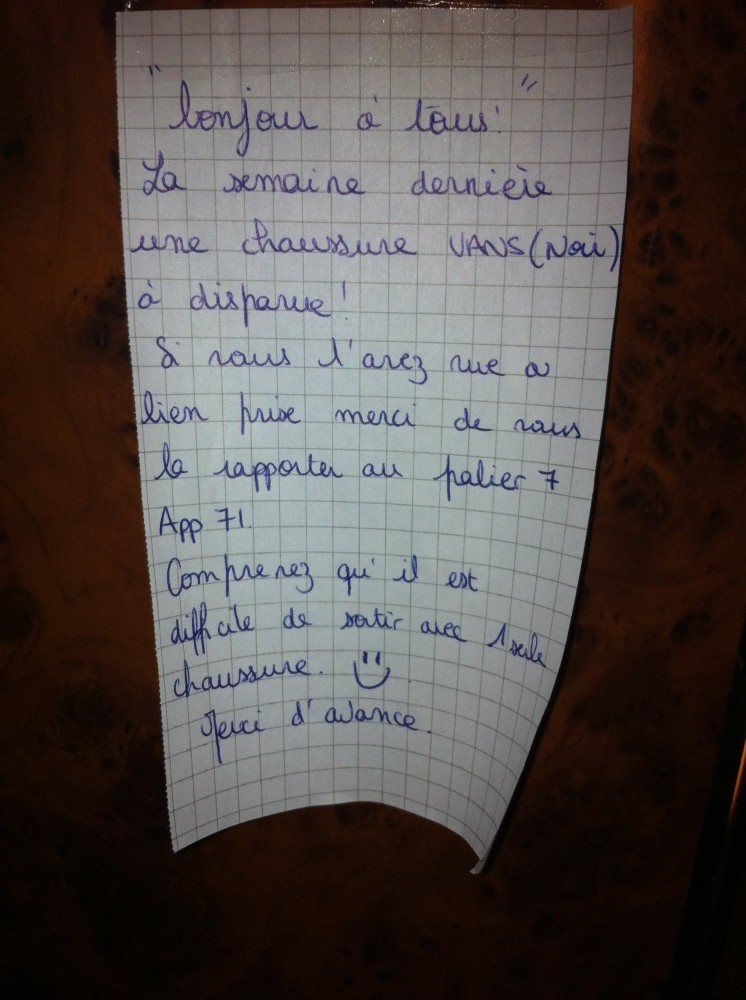 "bonjour à tous!"
La semaine dernière
une chaussure VANS (Noir)
à disparue!
Si vous l'avez vue ou
bien prise merci de nous
la rapporter au palier 7
App 71.
Comprenez qu'il est
difficile de sortir avec 1 seule
chaussure. 
Merci d'avance.